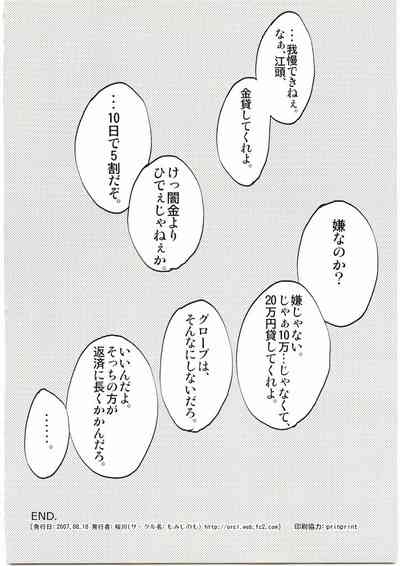 …我慢できねぇ。
なぁ、江頭、
金貸してくれよ。
…10日で5割だぞ。
けっ闇金より
ひでぇじゃねぇか。
嫌なのか?
嫌じゃない。
じゃぁ10万…じゃなくて、
20万円貸してくれよ。
グローブは、
そんなにしないだろ。
いいんだよ。
そっちの方が
返済に長くかかんだろ。
……。
END.
[発行日:2007.08.18 発行者:桜川(サークル名:もみじのむ) http://orci.web.fc2.com] 印刷協力:prinprint